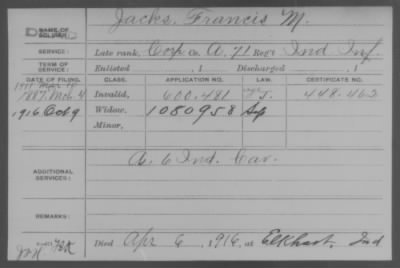 Jacks, Francis M.
NAME OF SOLDIER:
SERVICE: Late rank, Corp Co. A, 71 Reg't Ind Inf.
TERM OF SERVICE: Enlisted , 1 Discharged , 1
DATE OF FILING. CLASS. APPLICATION NO. LAW. CERTIFICATE NO.
1887. Mch 4 Invalid, 600.481 448.463
1916 Oct 9 Widow, 1080958 Sep
Minor,
ADDITIONAL SERVICES: A. 6 Ind. Cav.
REMARKS:
Died Apr 6, 1916, at Elkhart, Ind